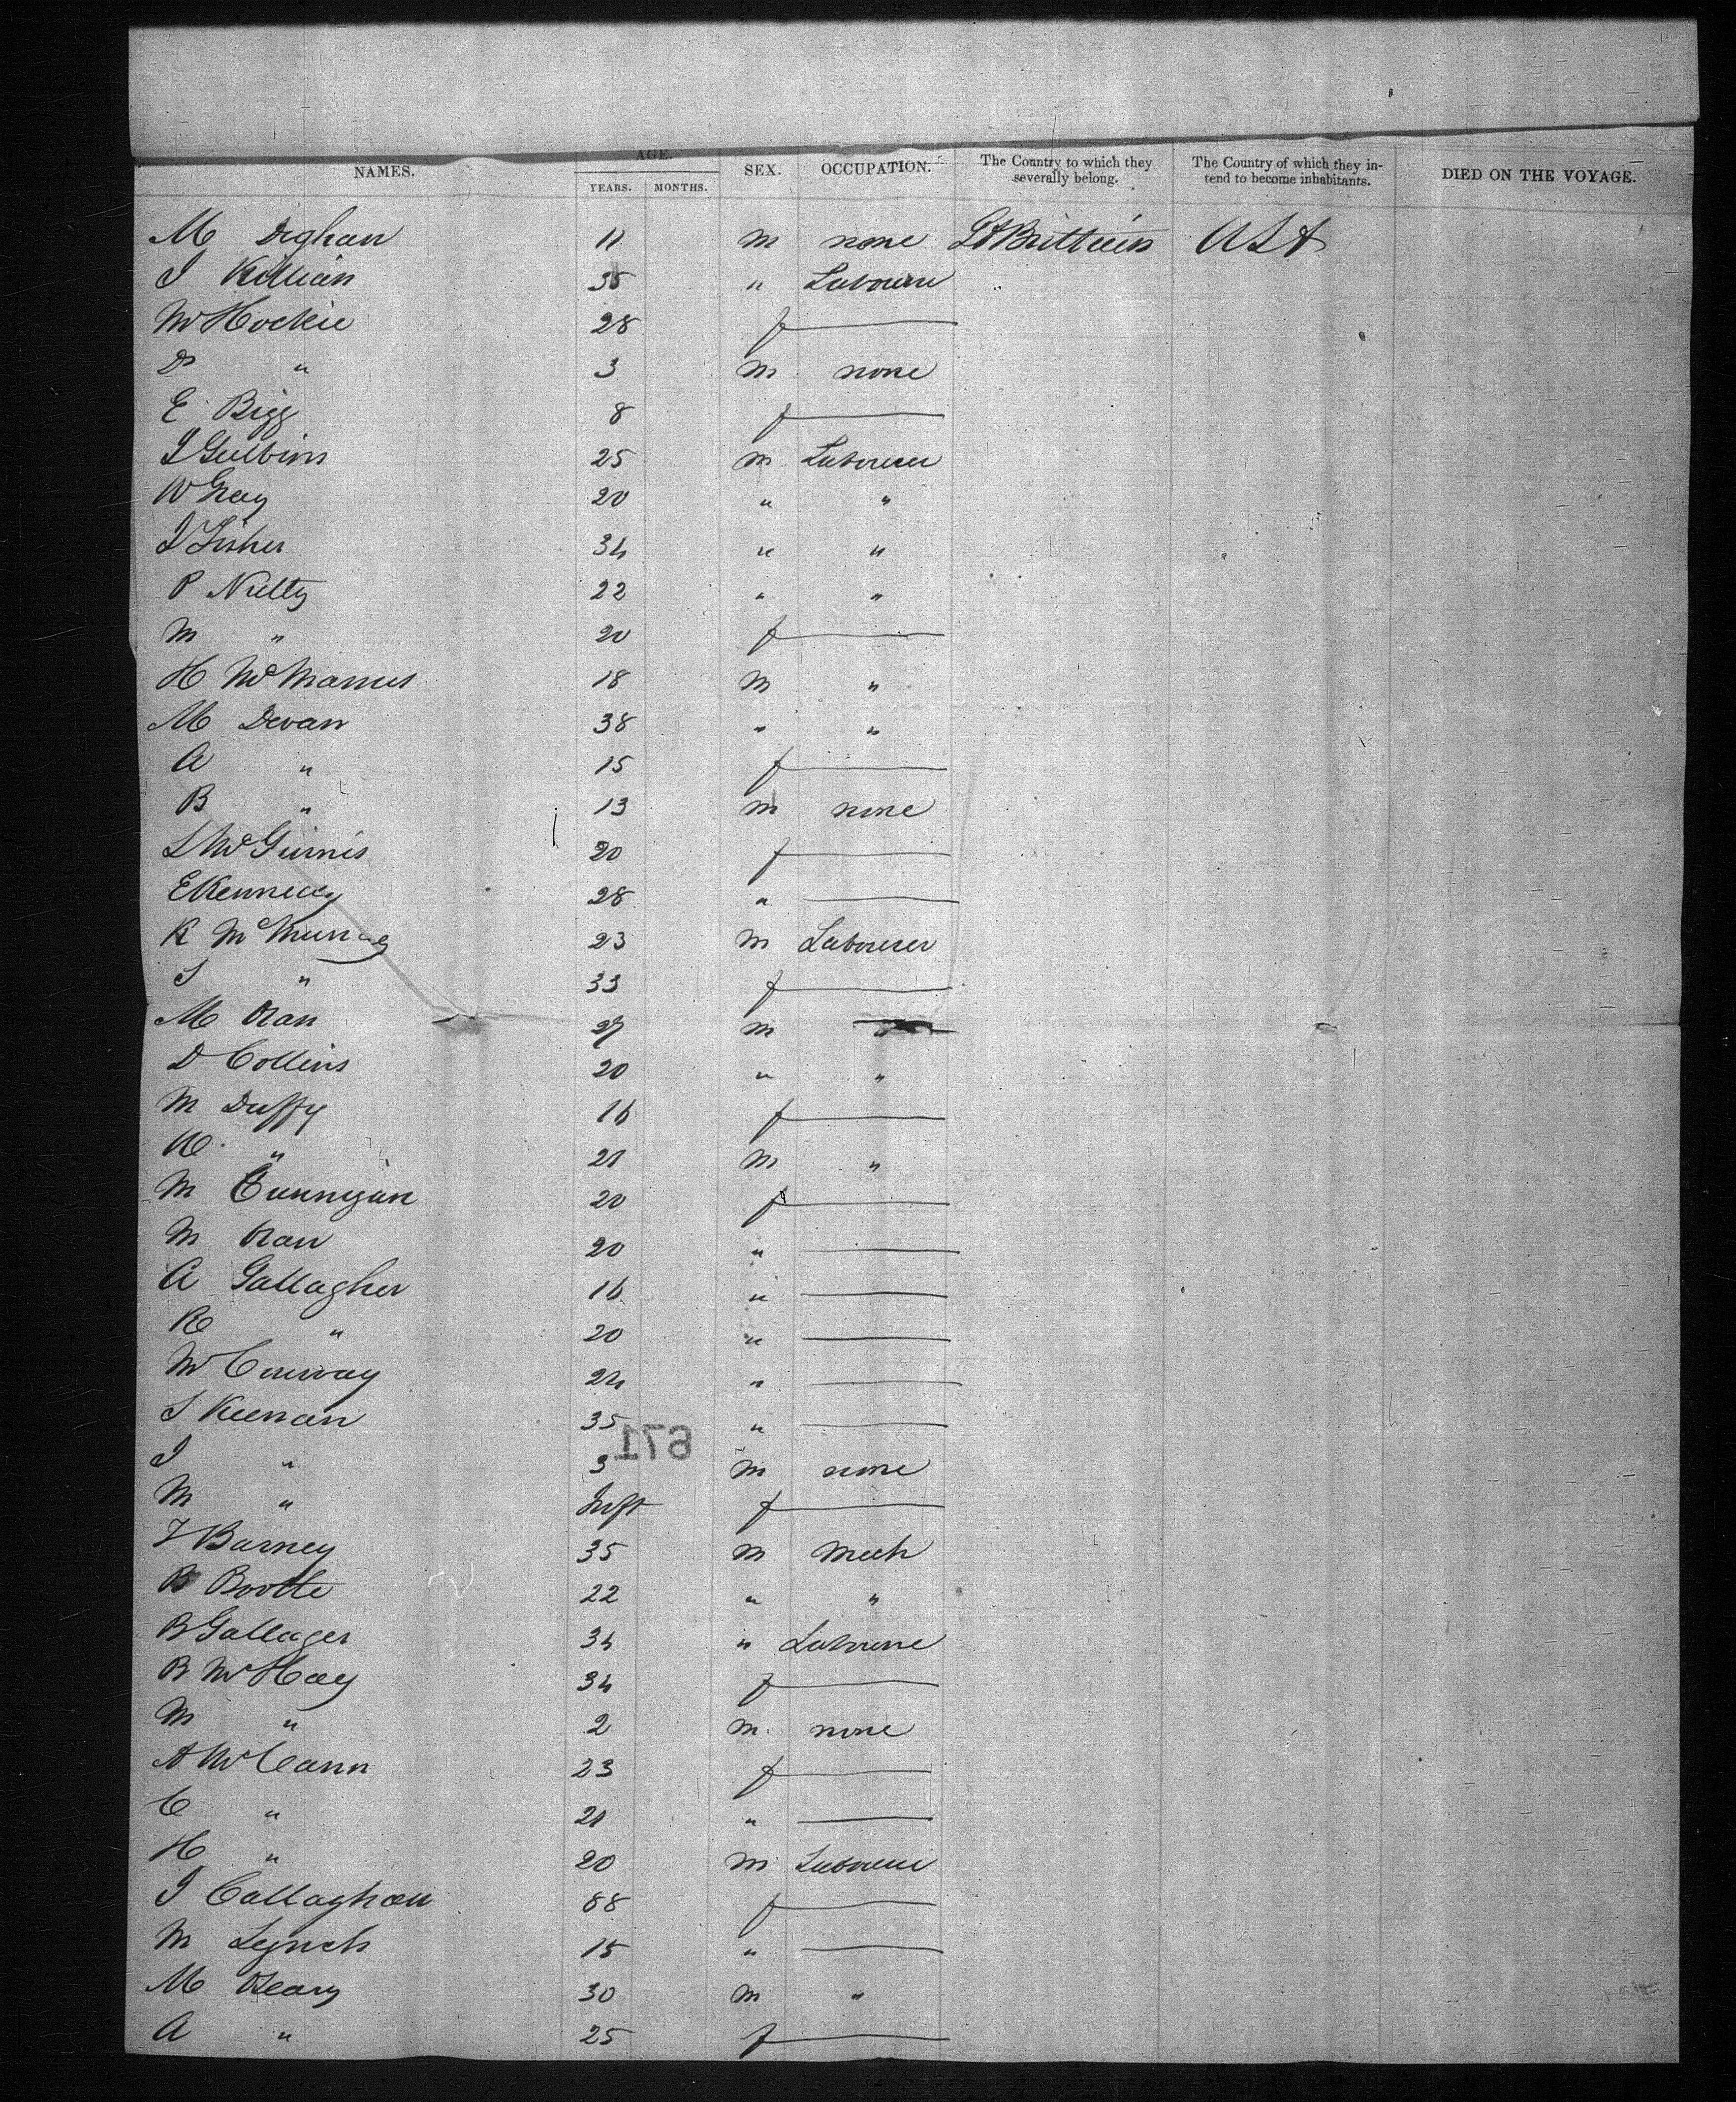 NAMES. AGE. SEX. OCCUPATION. The Country to which they severally belong. The Country of which they in-tend to become inhabitants. DIED ON THE VOYAGE.
YEARS. MONTHS.
M Deghan 11 m none Gt Brittain USA
J Killian 35 " Labourer "
Mc Hockie 28 f
D " 3 m none
E Bigg 8 f
J Gubbins 25 m Labourer
W Gray 20 " "
J Fisher 34 " "
P Nulty 22 " "
M " 20 f
H McManus 18 m "
M Devan 38 " "
A " 15 f
B " 13 m none
S McGinnis 20 f
E Kennedy 28 "
R McKunn 23 m Labourer
S " 33 f
M Ran 27 m "
D Collins 20 " "
M Duffy 16 f
K " 21 m "
M Cunnigan 20 f
M Ran 20 "
A Gallagher 16 "
K " 20 "
M Conway 24 "
S Keenan 35 "
671
J " 3 m none
M " Inft f
F Barney 35 m Mech
B Bootle 22 " "
B Gallager 34 " Labourer
B McHay 34 f
M " 2 m none
A McCann 23 f
C " 21 "
H " 20 m Labourer
J Callaghan 88 f
M Lynch 15 "
M Beary 30 m "
A " 25 f